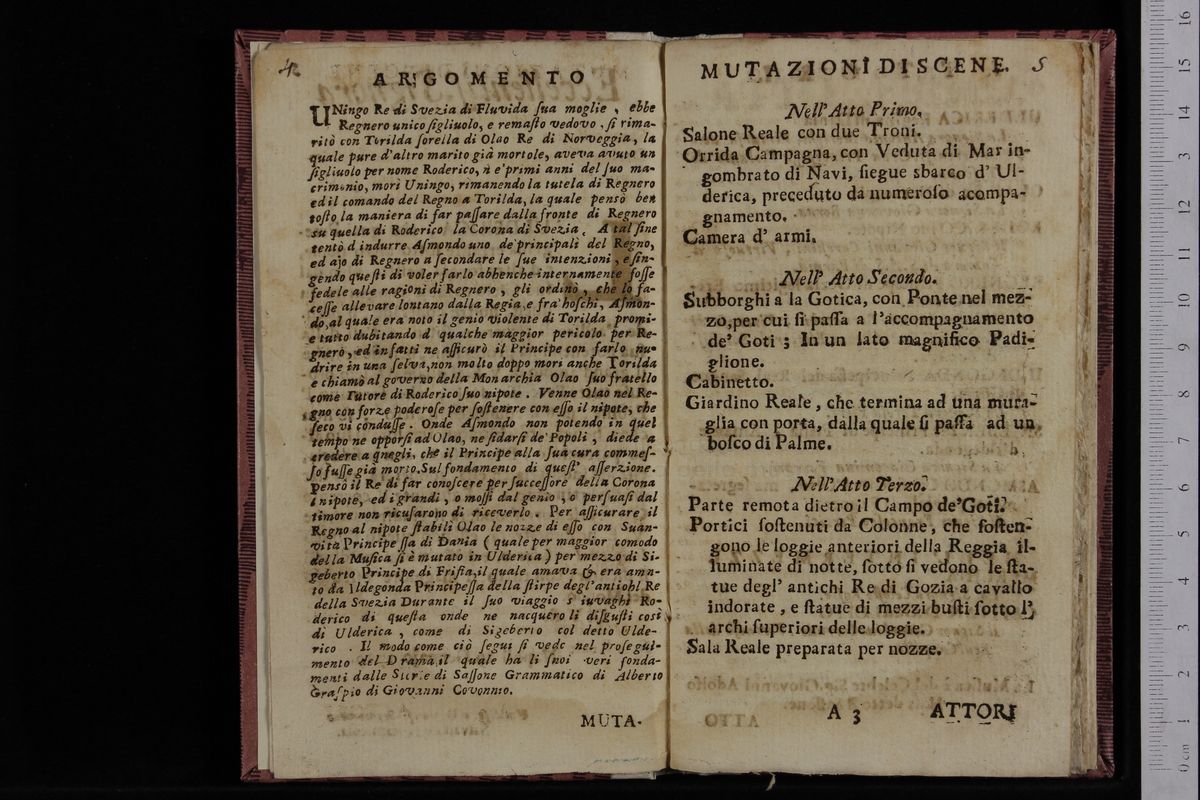 4
ARGOMENTO
UNingo Re di Svezia di Fluvida ſua moglie, ebbe
Regnero unico figliuolo, e remaſto vedovo, ſi rima-
ritò con Torilda ſorella di Olao Re di Norveggia, la
quale pure d'altro marito già mortole, aveva avuto un
figliuolo per nome Roderico, n e'primi anni del ſuo ma-
crimonio, morì Uningo, rimanendo la tutela di Regnero
ed il comando del Regno a Torilda, la quale pensò ben
toſto la maniera di far paſſare dalla fronte di Regnero
su quella di Roderico la Corona di Svezia. A tal fine
tentò d indurre Aſmondo uno de'principali del Regno,
ed ajo di Regnero a ſecondare le ſue intenzioni, e fin-
gendo queſti di voler farlo abbenche internamente foſſe
fedele alle ragioni di Regnero, gli ordinò, che lo fa-
ceſſe allevare lontano dalla Regia e fra'boſchi, Aſmon-
do, al quale era noto il genio violente di Torilda promi-
e tutto dubitando d qualche maggior pericolo per Re-
gnero, ed infatti ne aſſicurò il Principe con farlo nu-
drire in una ſelva, non molto doppo morì anche Torilda
e chiamò al governo della Monarchia Olao ſuo fratello
come Tutore di Roderico ſuo nipote. Venne Olao nel Re-
gno con forze poderoſe per ſoſtenere con eſſo il nipote, che
ſeco vi conduſſe. Onde Aſmondo non potendo in quel
tempo ne opporſi ad Olao, ne fidarſi de' Popoli, diede a
credere a quegli, che il Principe alla ſua cura commeſ-
ſo fuſſe già morto. Sul fondamento di queſt' aſſerzione.
pensò il Re di far conoſcere per ſucceſſore della Corona
l nipote, ed i grandi, o moſſi dal genio, o perſuaſi dal
timore non ricuſarono di riceverlo. Per aſſicurare il
Regno al nipote ſtabilì Olao le nozze di eſſo con Suan-
vita Principe ſſa di Dania (quale per maggior comodo
della Muſica ſi è mutato in Ulderica) per mezzo di Si-
geberto Principe di Friſia, il quale amava & era ama-
to da Ildegonda Principeſſa della ſtirpe degl'antichi Re
della Svezia Durante il ſuo viaggio s iuvaghì Ro-
derico di queſta onde ne nacquero li diſguſti così
di Ulderica, come di Sigeberto col detto Ulde-
rico. Il modo come ciò ſeguì ſi vede nel proſegui-
mento del Drama, il quale ha li ſuoi veri fonda-
menti dalle Storie di Saſſone Grammatico di Alberto
Graſpio di Giovanni Covonnio.
MUTA-
MUTAZIONI DI SCENE. 5
Nell' Atto Primo,
Salone Reale con due Troni.
Orrida Campagna, con Veduta di Mar in-
gombrato di Navi, ſiegue sbarco d' Ul-
derica, preceduto da numeroſo acompa-
gnamento.
Camera d' armi.
Nell' Atto Secondo.
Subborghi a la Gotica, con Ponte nel mez-
zo, per cui ſi paſſa a l'accompagnamento
de' Goti; In un lato magnifico Padi-
glione.
Cabinetto.
Giardino Reale, che termina ad una mura-
glia con porta, dalla quale ſi paſſa ad un
boſco di Palme.
Nell' Atto Terzo.
Parte remota dietro il Campo de'Goti.
Portici ſoſtenuti da Colonne, che ſoſten-
gono le loggie anteriori della Reggia il-
luminate di notte, ſotto ſi vedono le ſta-
tue degl' antichi Re di Gozia a cavallo
indorate, e ſtatue di mezzi buſti ſotto l'
archi ſuperiori delle loggie.
Sala Reale preparata per nozze.
A 3 ATTORI
0 cm 1 2 3 4 5 6 7 8 9 10 11 12 13 14 15 16